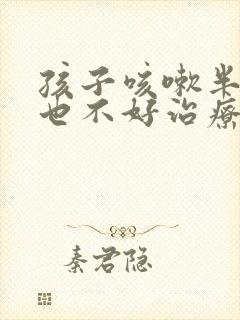 孩子咳嗽半
也不好治疗
秦君隐